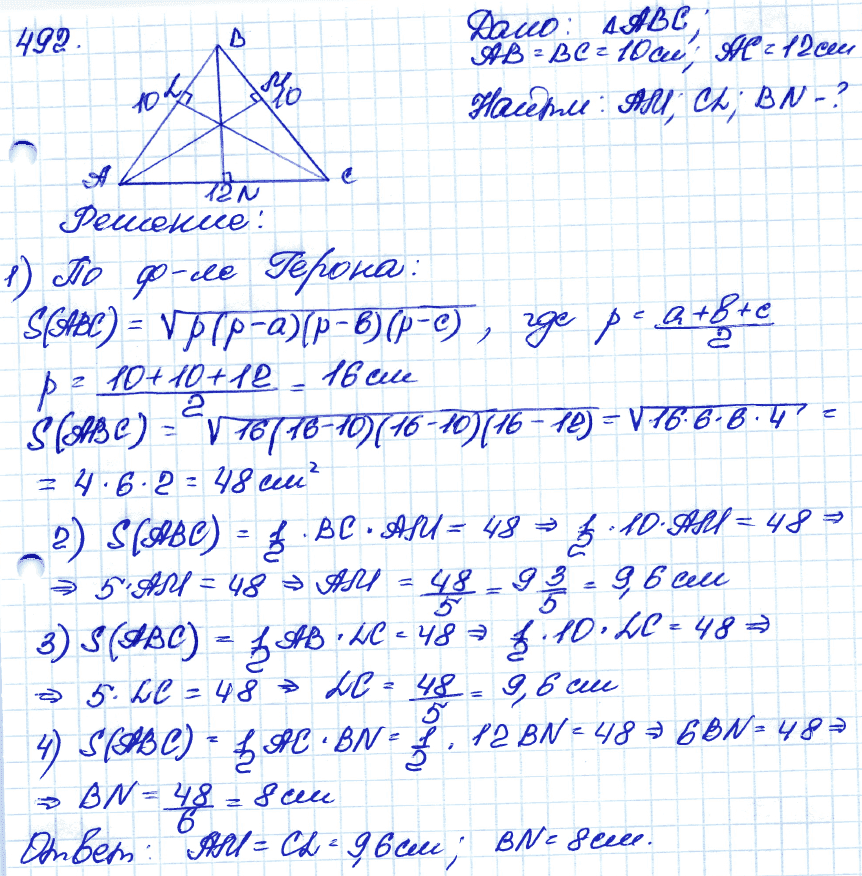 492.
Дано: ΔABC;
AB = BC = 10 см; AC = 12 см
Найти: AM; CL; BN - ?
B
L
M
10
10
A
C
12 N
Решение:
1) По ф-ле Герона:
S(ABC) = √p(p-a)(p-b)(p-c), где p = (a+b+c)/2
p = (10+10+12)/2 = 16 см
S(ABC) = √16(16-10)(16-10)(16-12) = √16·6·6·4 =
= 4·6·2 = 48 см²
2) S(ABC) = 1/2 · BC · AM = 48 ⇒ 1/2 · 10 · AM = 48 ⇒
⇒ 5·AM = 48 ⇒ AM = 48/5 = 9 3/5 = 9,6 см
3) S(ABC) = 1/2 AB · LC = 48 ⇒ 1/2 · 10 · LC = 48 ⇒
⇒ 5·LC = 48 ⇒ LC = 48/5 = 9,6 см
4) S(ABC) = 1/2 AC · BN = 1/2 · 12 BN = 48 ⇒ 6BN = 48 ⇒
⇒ BN = 48/6 = 8 см
Ответ: AM = CL = 9,6 см; BN = 8 см.